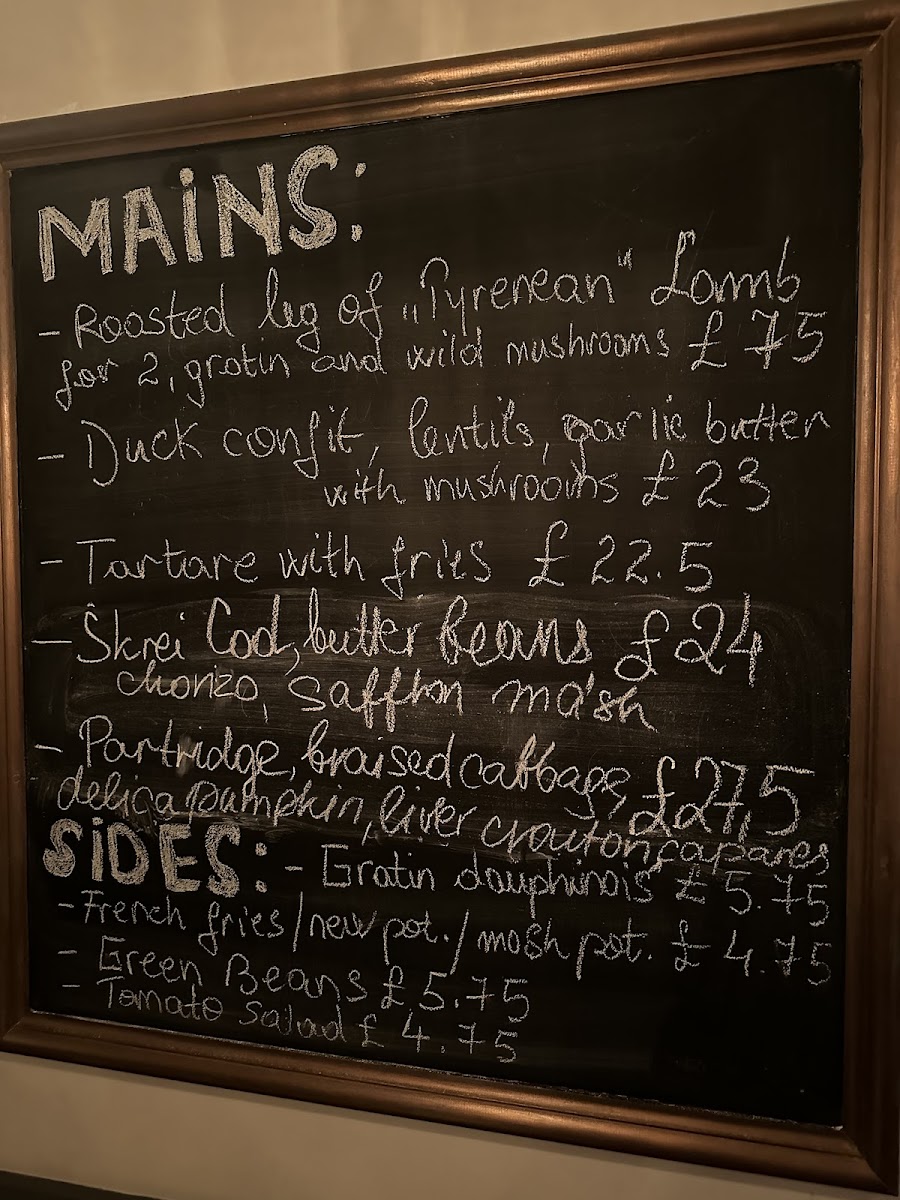 MAiNS:
- Roasted leg of „Pyrenean" Lamb
for 2, gratin and wild mushrooms £ 75
- Duck confit, lentils, garlic butter
with mushrooms £ 23
- Tartare with fries £ 22.5
- Skrei Cod, butter Beans £24
chorizo, saffron mash
- Partridge, braised cabbage, £27,5
delica pumpkin, liver crouton, capares
SiDES: - Gratin dauphinois £ 5.75
- French fries / new pot. / mash pot. £ 4.75
- Green Beans £ 5.75
- Tomato Salad £ 4.75